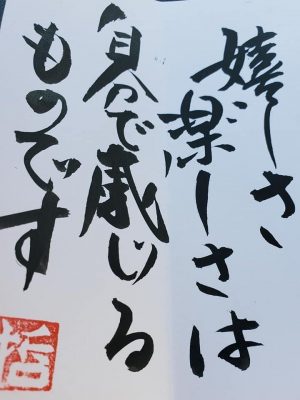 嬉しさ、
楽しさは
自分で感じる
ものです
哲